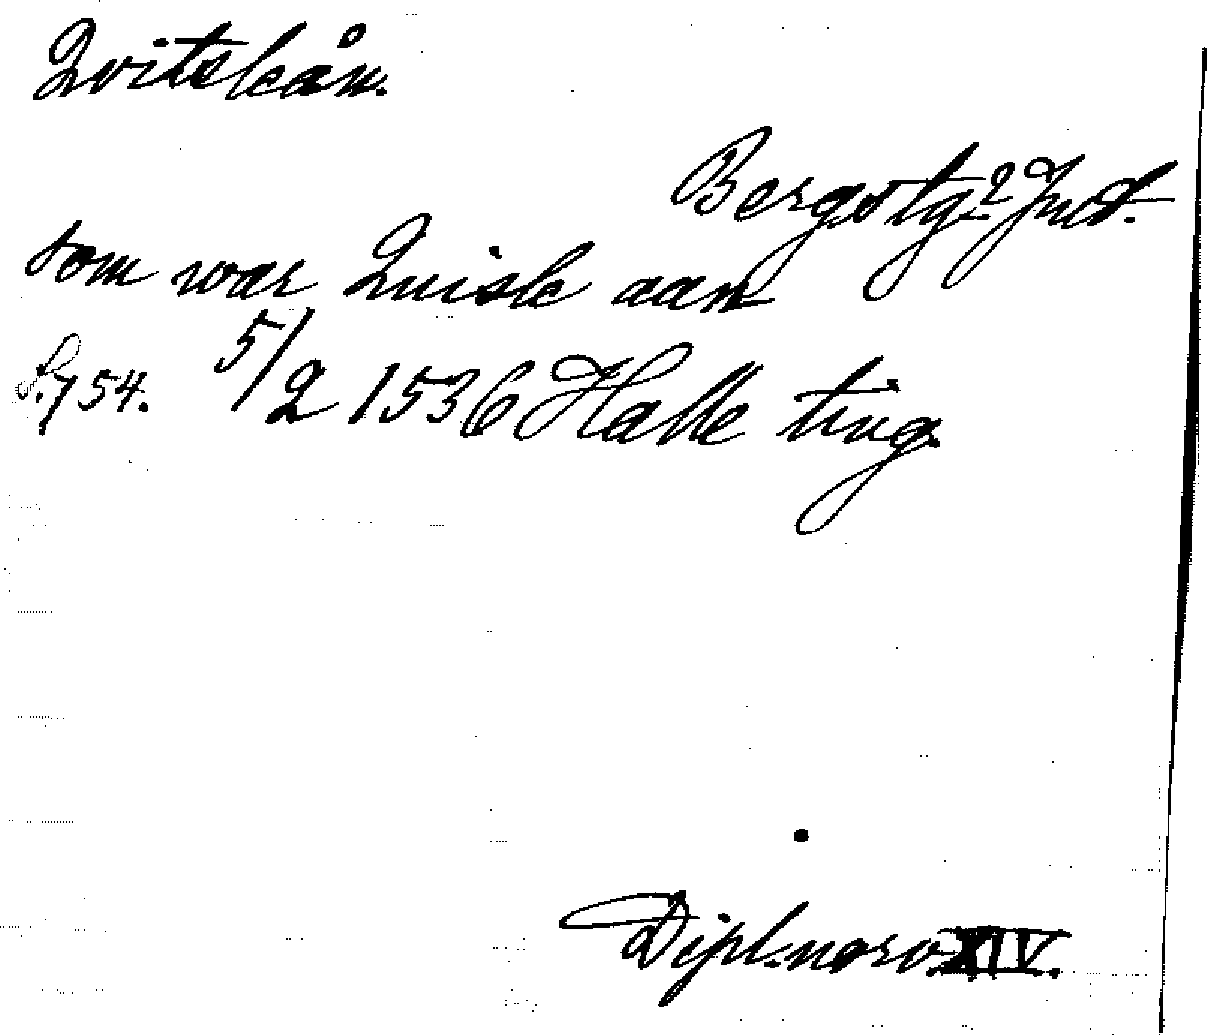 Qvitskån.
Bergs tg? Jmt.
som war Quisle aan
S. 754. 5/2 1536 Halle ting.
Dipl. norv. XIV.